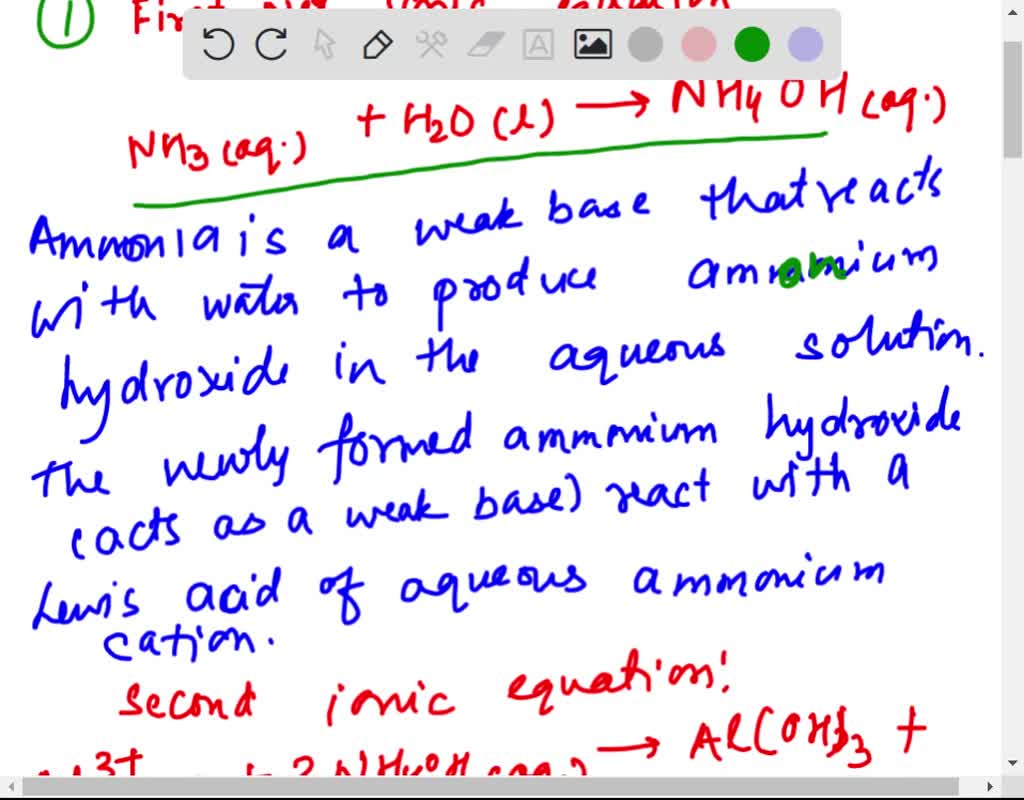 ① First Net ionic equation
NH3 (aq.) + H2O (l) → NH4 OH (aq.)
Ammonia is a weak base that reacts
with water to produce ammonium
hydroxide in the aqueous solution.
The newly formed ammonium hydroxide
(acts as a weak base) react with a
Lewis acid of aqueous ammonium
cation.
Second ionic equation:
3+ + 3 NH4OH (aq.) → Al(OH)3 +